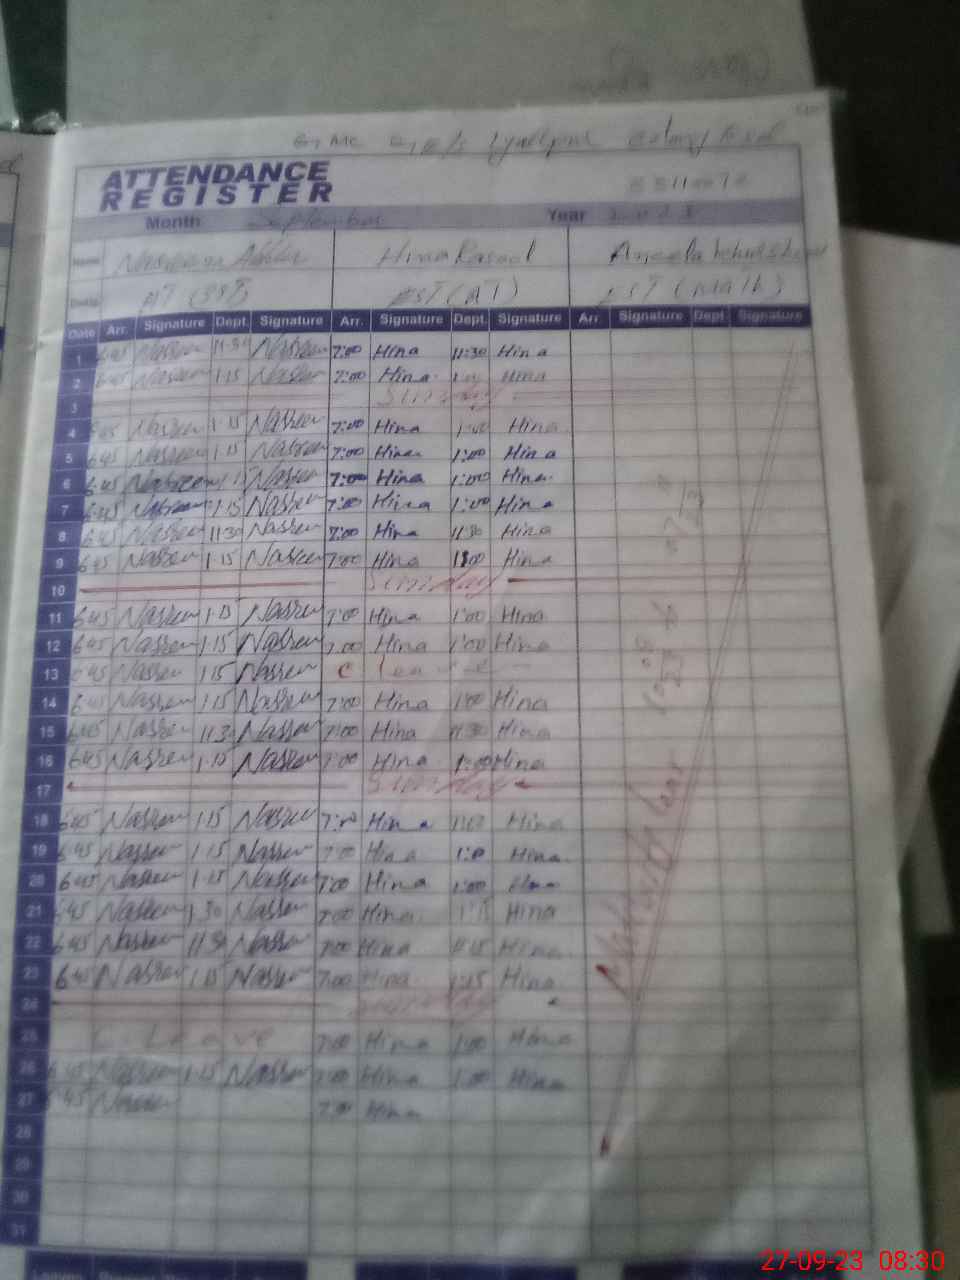 ATTENDANCE
REGISTER
Month September Year 2023
Name Hina Rasool Aneela
Date Arr. Signature Dept. Signature Arr. Signature Dept. Signature Arr. Signature Dept Signature
1 6:45 Nasreen 11:30 Nasreen 7:00 Hina 11:30 Hina
2 6:45 Nasreen 1:15 Nasreen 7:00 Hina Hina
3 Sunday
4 6:45 Nasreen 1:15 Nasreen 7:00 Hina 1:00 Hina
5 6:45 Nasreen 1:15 Nasreen 7:00 Hina 1:00 Hina
6 6:45 Nasreen 1:15 Nasreen 7:00 Hina 1:00 Hina
7 6:45 Nasreen 1:15 Nasreen 7:00 Hina 1:00 Hina
8 6:45 Nasreen 11:30 Nasreen 7:00 Hina 11:30 Hina
9 6:45 Nasreen 1:15 Nasreen 7:00 Hina 1:00 Hina
10 Sunday
11 6:45 Nasreen 1:15 Nasreen 7:00 Hina 1:00 Hina
12 6:45 Nasreen 1:15 Nasreen 7:00 Hina 1:00 Hina
13 6:45 Nasreen 1:15 Nasreen C Leave
14 6:45 Nasreen 1:15 Nasreen 7:00 Hina 1:00 Hina
15 6:45 Nasreen 11:30 Nasreen 7:00 Hina 11:30 Hina
16 6:45 Nasreen 1:15 Nasreen 7:00 Hina 1:00 Hina
17 Sunday
18 6:45 Nasreen 1:15 Nasreen 7:00 Hina 1:00 Hina
19 6:45 Nasreen 1:15 Nasreen 7:00 Hina 1:0 Hina
20 6:45 Nasreen 1:15 Nasreen 7:00 Hina 1:00 Hina
21 6:45 Nasreen 1:30 Nasreen 7:00 Hina 1:15 Hina
22 6:45 Nasreen 11:30 Nasreen 7:00 Hina Hina
23 6:45 Nasreen 1:15 Nasreen 7:00 Hina 1:15 Hina
24 Sunday
25 C. Leave 7:00 Hina 1:00 Hina
26 6:45 Nasreen 1:15 Nasreen 7:00 Hina 1:00 Hina
27 6:45 Nasreen 7:00 Hina
28
29
30
31
27-09-23 08:30